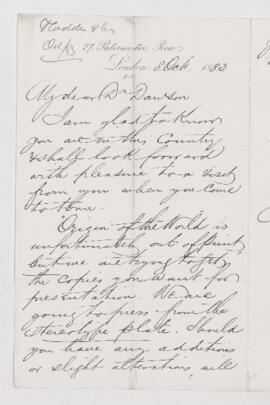 Hodder & Co
Oct/83 27, Paternoster Row,
London 8 Oct. 1883
E.C.
My dear Dr Dawson
I am glad to know
you are in this Country
& shall look forward
with pleasure to a visit
from you when you come
to town.
"Origin of the World" is
unfortunately out of print
but we are trying to get
the copies you want for
presentation. We are
going to press from the
stereotype plate. Should
you have any additions
or slight alterations, will